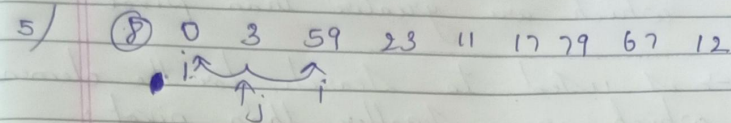 5) 8 0 3 59 23 11 17 79 67 12
i j i